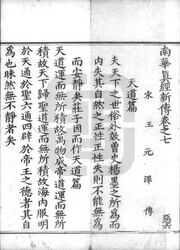 南華真經新傳卷之七
宋王元澤傳
天道篇
夫天下之俗外於曾史楊墨之所為而
內失其自然之正性正性失則不能無為
而安靜矣莊子因而作天道篇
天道運而無所積故萬物成帝道運而無所
積故天下歸聖道運而無所積故海內服明
於天通於聖六通四辟於帝王之德者其自
為也昧然無不靜者矣